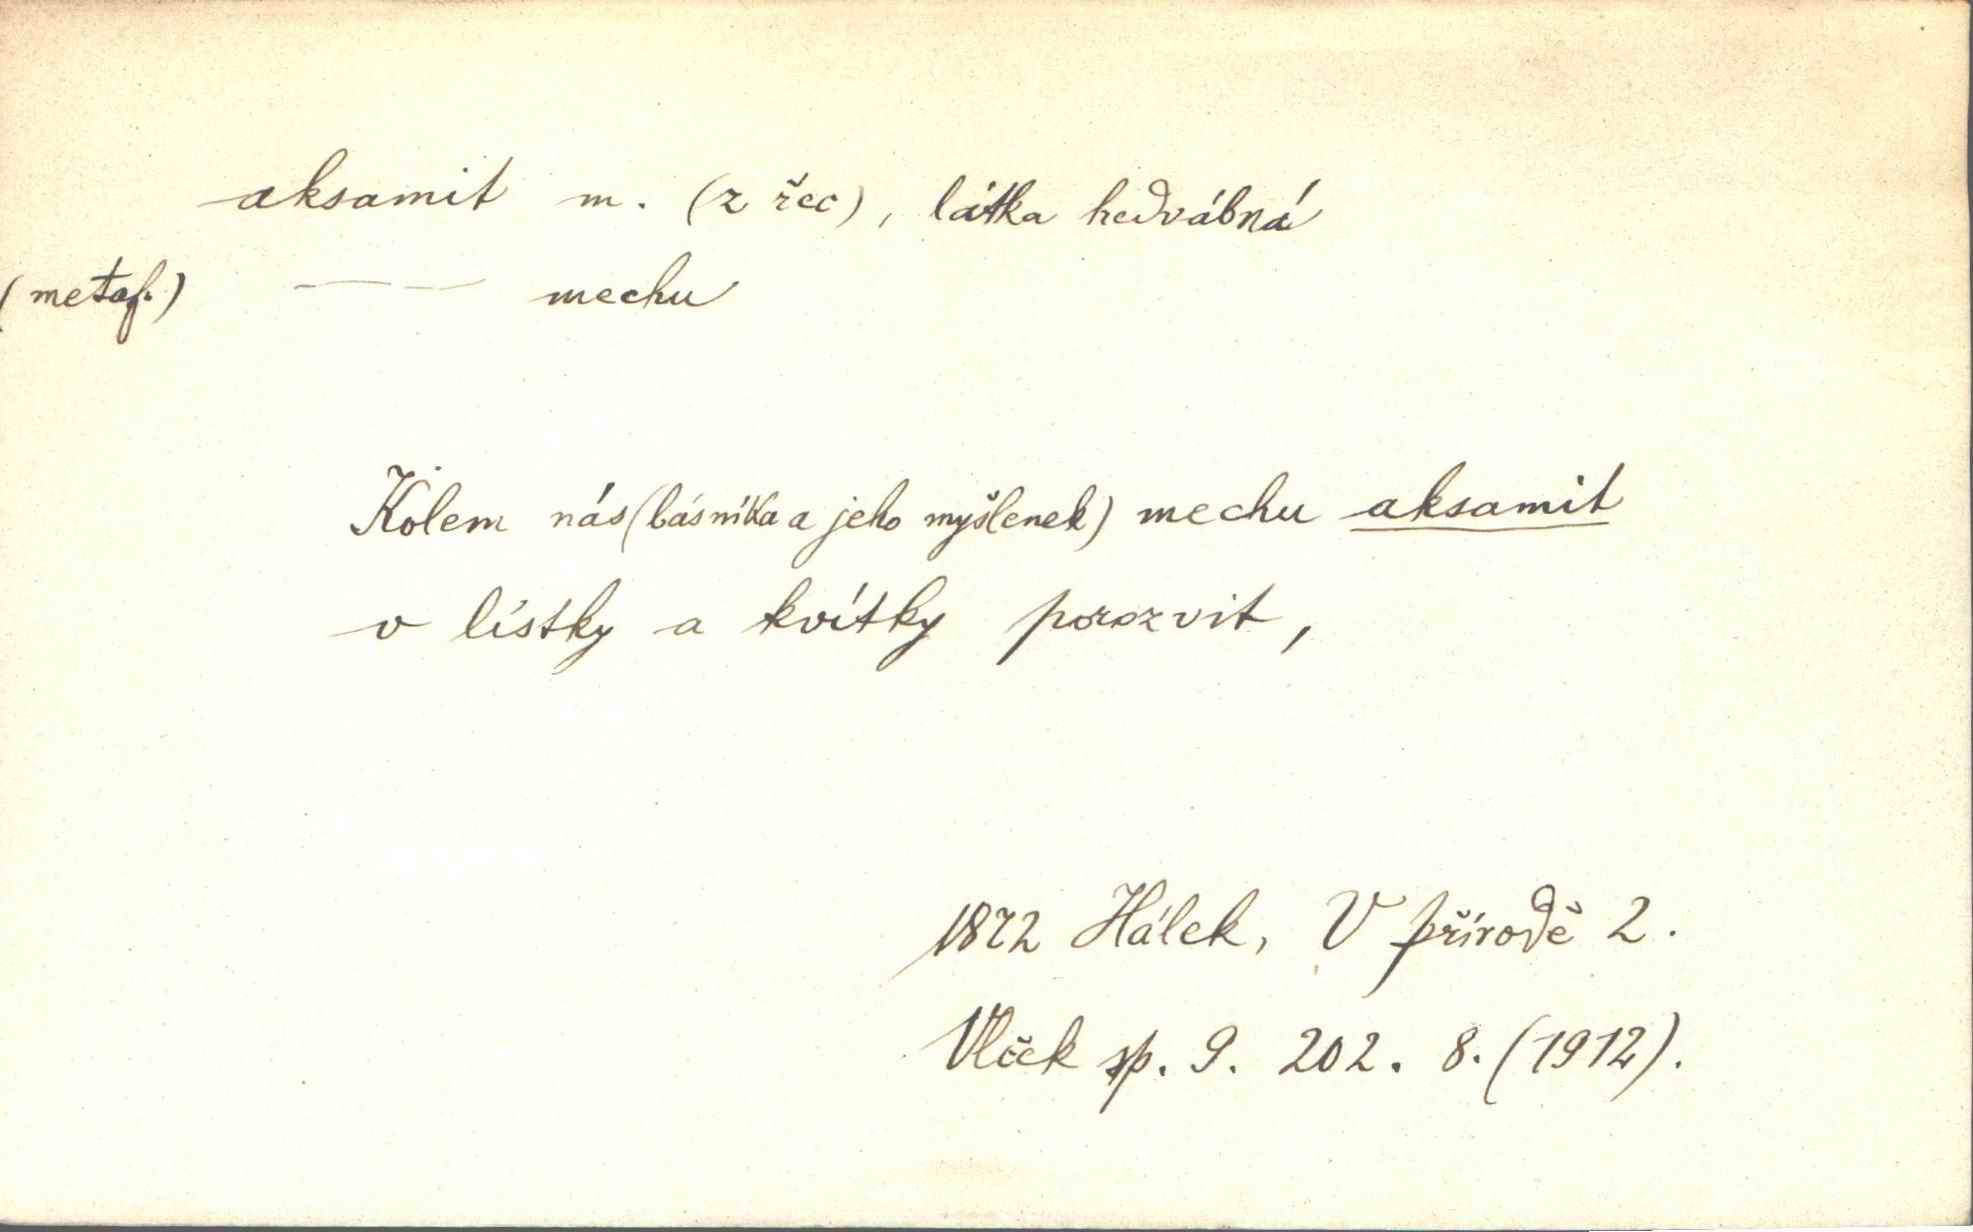 aksamit m. (z řec), látka hedvábná
(metaf.) —— mechu
Kolem nás (básníka a jeho myšlenek) mechu aksamit
v lístky a kvítky porozvit,
1872 Hálek, V přírodě 2.
Vlček sp. 9. 202. 8. (1912).